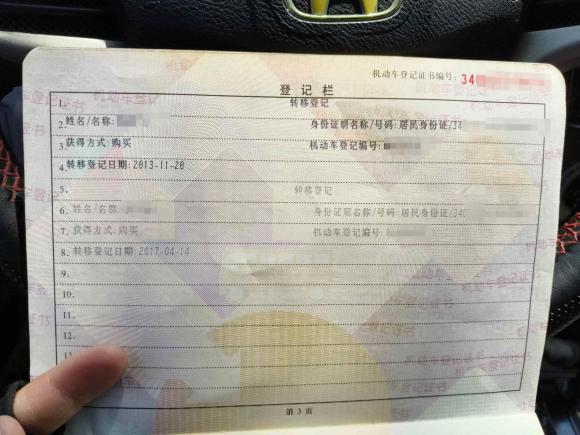 机动车登记证书编号: 34
登记栏
1. 转移登记
2. 姓名/名称: 身份证明名称/号码:居民身份证/34
3. 获得方式:购买 机动车登记编号:
4. 转移登记日期:2013-11-20
5. 转移登记
6. 姓名/名称: 身份证明名称/号码:居民身份证/34
7. 获得方式:购买 机动车登记编号:
8. 转移登记日期:2017-04-14
9.
10.
11.
12.
13
第 3 页
机动车登记证书